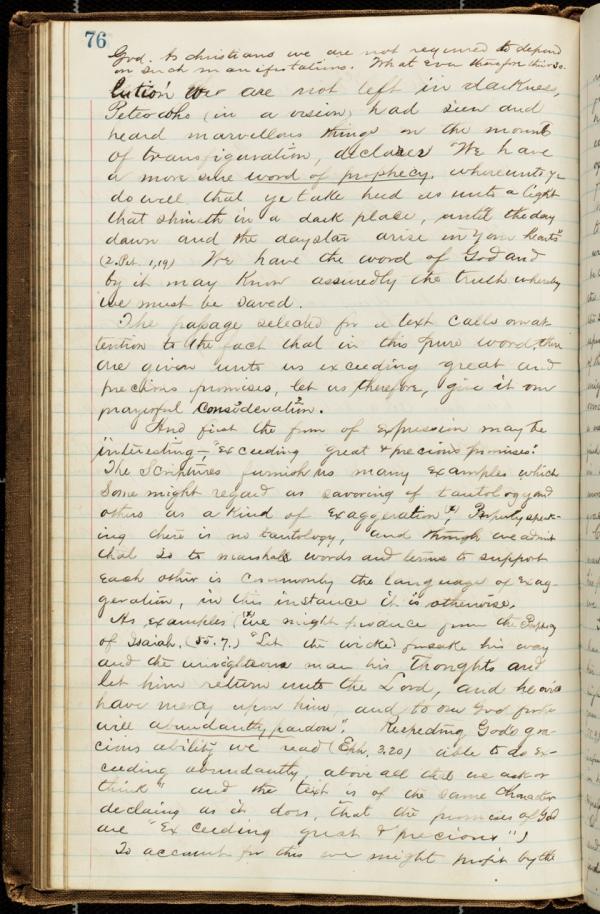 76
God. As christians we are not required to depend
on such manifestations. What ever therefore
lution we are not left in darkness,
Peter who (in a vision) had seen and
heard marvellous things on the mount
of transfiguration, declares "We have
a more sure word of prophecy. whereunto ye
do well that ye take heed as unto a light
that shineth in a dark place, until the day
dawn and the daystar arise in your hearts"
(2. Pet. 1,19) We have the word of God and
by it may know assuredly the truth whereby
we must be saved.
The passage selected for a text calls our at-
tention to the fact that in this pure word, there
are given unto us exceeding great and
precious promises, let us, therefore, give it our
prayerful consideration.
And first the form of expression may be
interesting — "Exceeding great & precious promises".
The Scriptures furnish us many examples which
some might regard as savoring of tautology and
others as a kind of exaggeration, Properly speak-
ing there is no tautology, and though we admit
that so to marshall words and terms to support
each other is commonly the language of exag-
geration, in this instance it is otherwise.
As examples (we might produce from the Prophecy
of Isaiah. (55. 7.) "Let the wicked forsake his way
and the unrighteous man his thoughts and
let him return unto the Lord, and he will
have mercy upon him, and to our God for he
will abundantly pardon". Respecting Gods gra-
cious ability we read (Eph. 3.20) able to do ex-
ceeding abundantly, above all that we ask or
think" and the text is of the same character
declaring as it does, that the promises of God
are "Exceeding great & precious")
To account for this we might profit by the